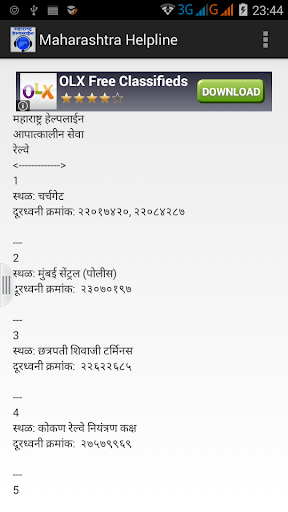 3G G 23:44
महाराष्ट्र हेल्पलाईन
Maharashtra Helpline
OLX
OLX Free Classifieds
DOWNLOAD
महाराष्ट्र हेल्पलाईन
आपात्कालीन सेवा
रेल्वे
<------------->
1
स्थळ: चर्चगेट
दूरध्वनी क्रमांक: २२०१७४२०, २२०८४२८७
---
2
स्थळ: मुंबई सेंट्रल (पोलीस)
दूरध्वनी क्रमांक:  २३०७०१९७
---
3
स्थळ: छत्रपती शिवाजी टर्मिनस
दूरध्वनी क्रमांक:  २२६२२६८५
---
4
स्थळ: कोकण रेल्वे नियंत्रण कक्ष
दूरध्वनी क्रमांक:  २७५७९९६९
---
5